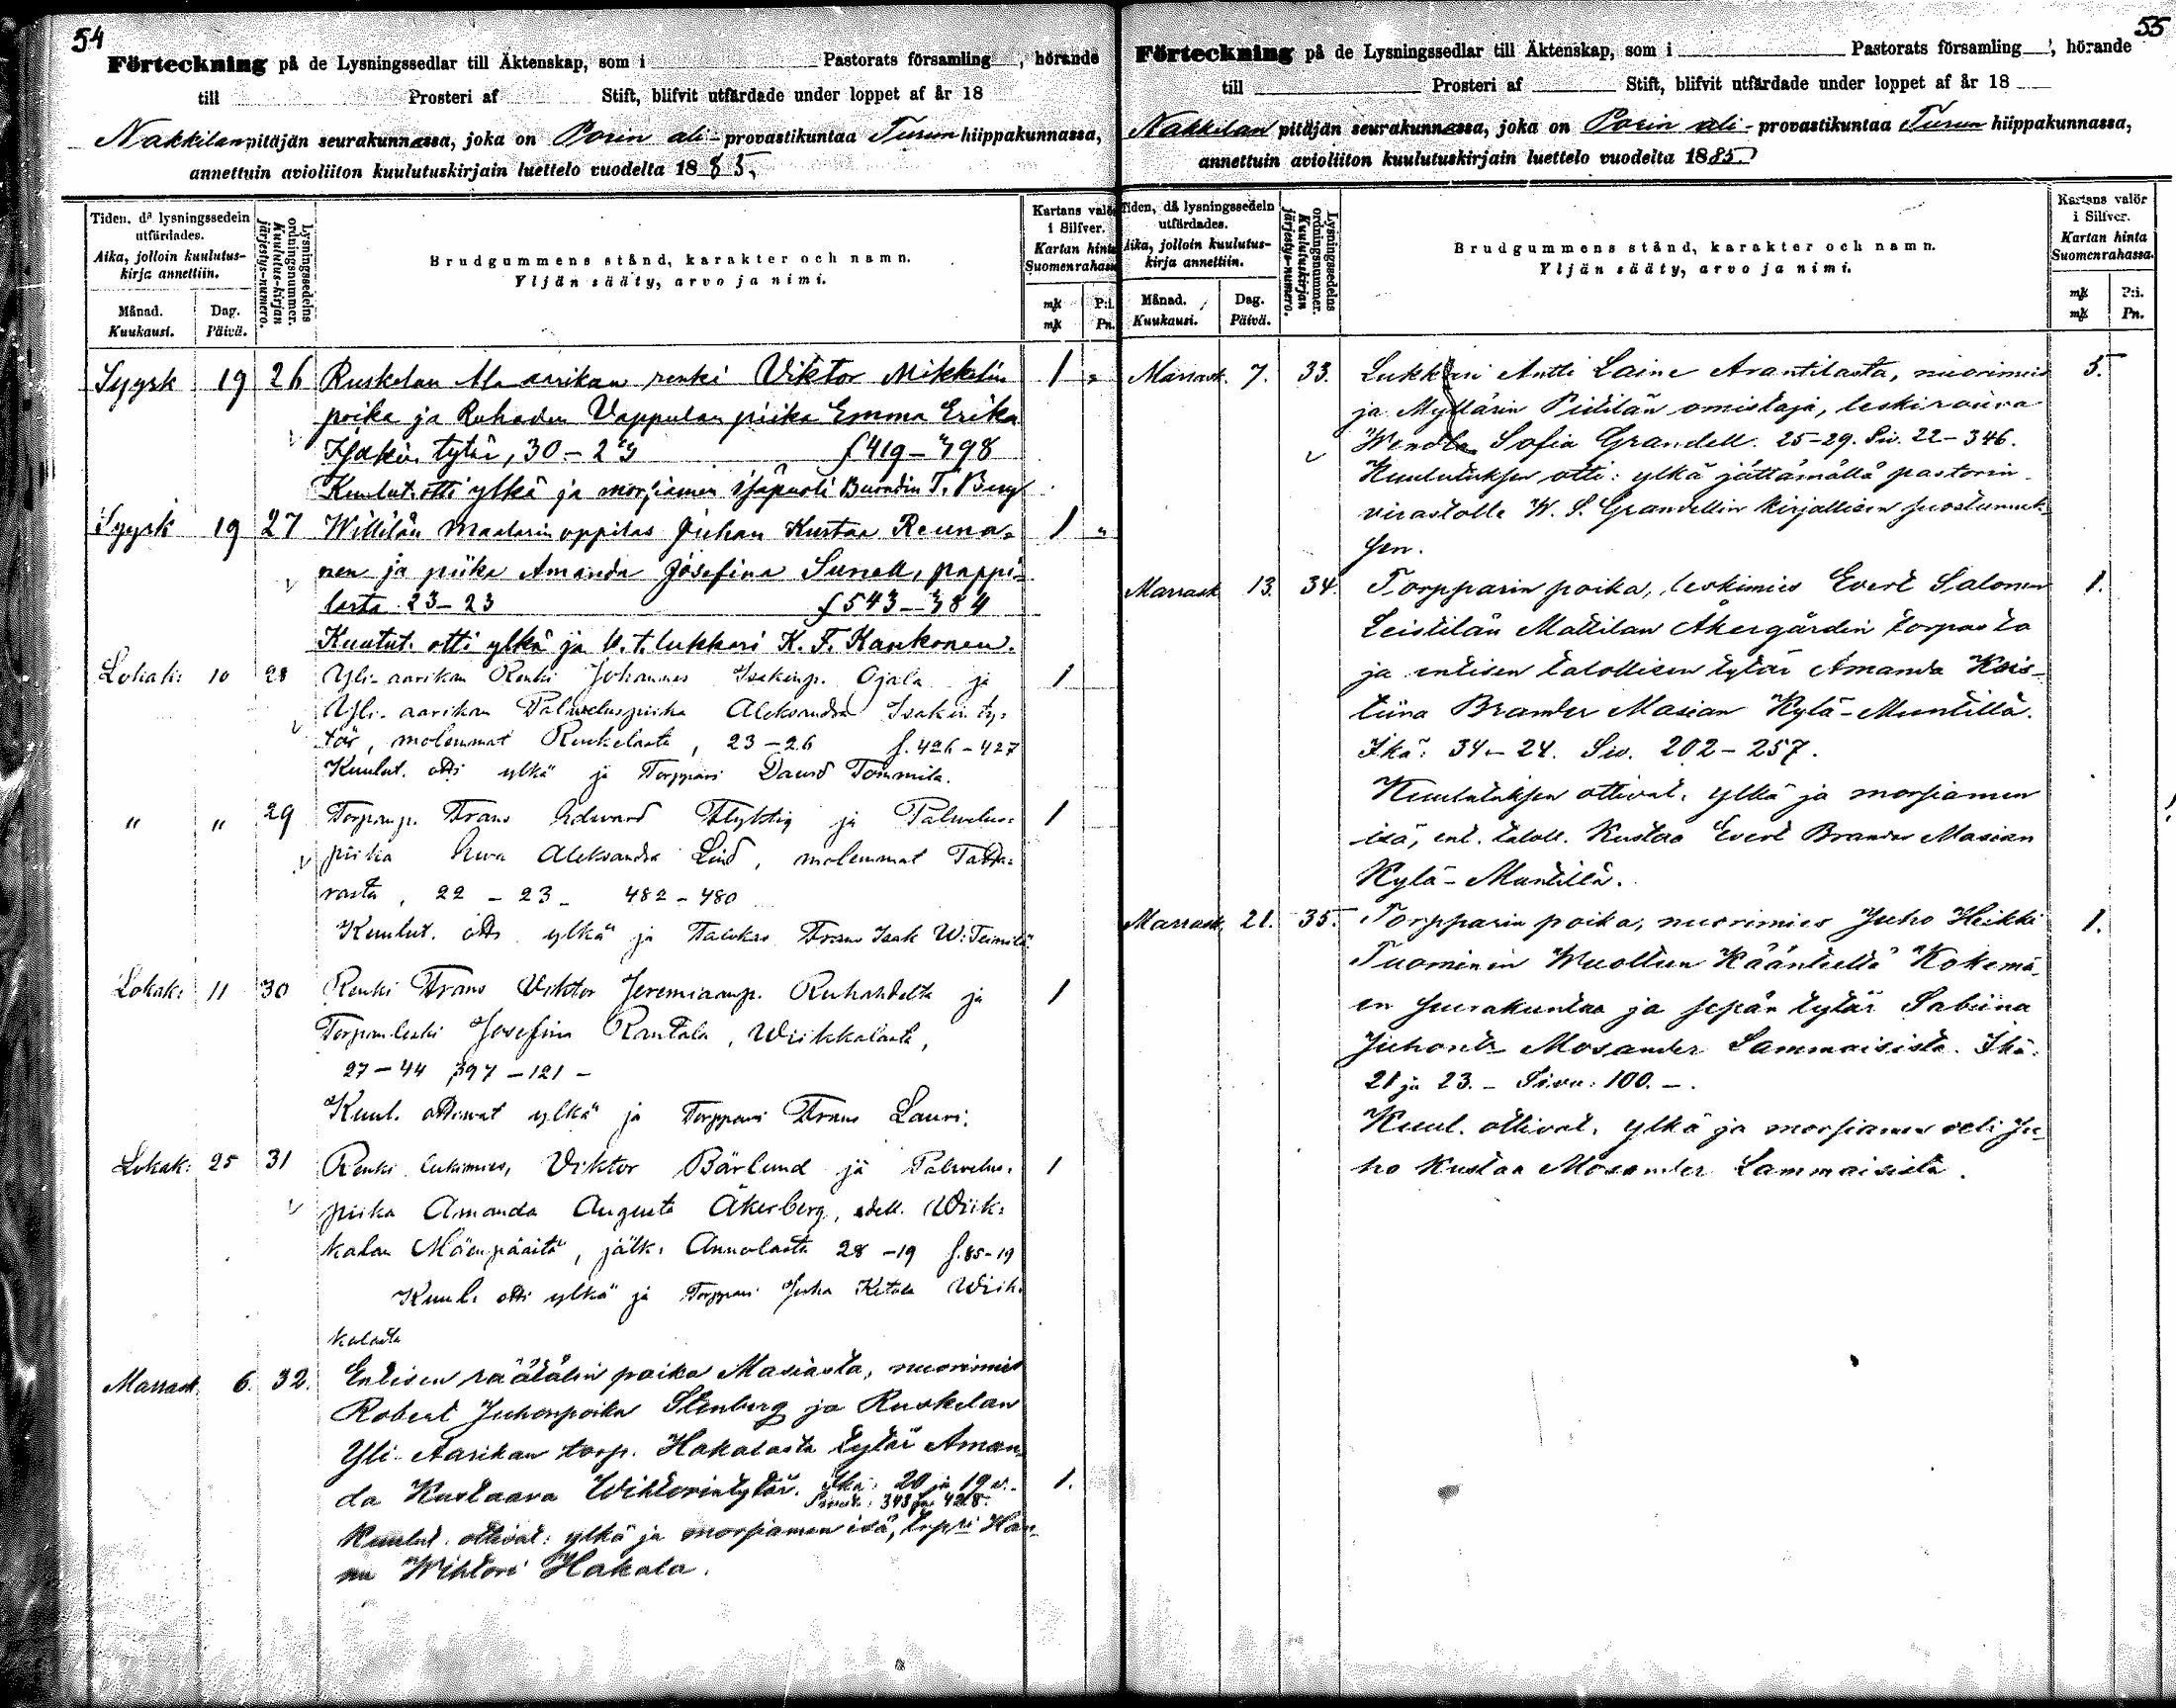 54
Förteckning på de Lysningssedlar till Äktenskap, som i Pastorats församling, hörande
till Prosteri af Stift, blifvit utfärdade under loppet af år 18
Nakkilan pitäjän seurakunnassa, joka on Porin ali-provastikuntaa Turun hiippakunnassa,
annettuin avioliiton kuulutuskirjain luettelo vuodelta 1885.
Tiden, då lysningssedeln utfärdades.
Aika, jolloin kuulutus-kirja annettiin.
Månad. Kuukausi.
Dag. Päivä.
Lysningssedelns ordningsnummer.
Kuulutus-kirjan järjestys-numero.
Brudgummens stånd, karakter och namn.
Yljän sääty, arvo ja nimi.
Kartans valör i Silfver.
Kartan hinta Suomenrahassa
mk P:i.
mk Pn.
Syysk 19 26 Ruskelan Ala aarikan renki Viktor Mikkelin 1 "
poika ja Ruhaden Vappulan piika Emma Erika
Isakin tytär, 30-23 f 419-398
Kuulut. otti ylkä ja morsiamen isäpuoli T. Berg
Syysk 19 27 Willilän Maalarin oppilas Juhan Kustaa Reuna- 1 "
nen ja piika Amanda Josefina Sunell, pappi-
lasta 23-23 f 543-384
Kuulut. otti ylkä ja v. t. lukkari K. F. Kankonen.
Lokak: 10 28 Yli-aarikan Renki Johannes Isakinp. Ojala ja 1
Yli-aarikan Palveluspiika Aleksandra Isakin ty-
tär, molemmat Ruskelasta, 23-26 f. 426-427
Kuulut. otti ylkä ja Torppari David Tommila.
" " 29 Torpanp. Frans Edward Flyktig ja Palvelus- 1
piika Eeva Aleksandra Lind, molemmat Tatta-
rasta, 22-23- 482-480
Kuulut. otti ylkä ja Talokas Frans Isak W:
Lokak: 11 30 Renki Frans Viktor Jeremiaanp. Ruhahdelta ja 1
Torpanleski Josefina Rantala, Wiikkalasta,
27-44 397-121-
Kuul. ottiwat ylkä ja Torppari Frans Lauri.
Lokak: 25 31 Renki leskimies, Viktor Bärlund ja Palvelus- 1
piika Amanda Augusta Åkerberg, edell. Wiik-
kalan Mäenpäältä, jälk. Annolasta 28-19 f. 85-19
Kuul. otti ylkä ja Torppari Juha Ketala Wiik-
kalasta
Marrask. 6. 32. Entisen räätälin poika Masiasta, nuorimies
Robert Juhonpoika Stenberg ja Ruskelan
Yli-Aarikan torp. Hakalasta tytär Aman-
da Kustaava Wihtorintytär. Ikä: 20 ja 19 v. 1.
Sivut: 343 ja 428.
Kuulut. ottivat: ylkä ja morsiamen isä, torp:ri Han-
nu Wihtori Hakala.
55
Förteckning på de Lysningssedlar till Äktenskap, som i Pastorats församling, hörande
till Prosteri af Stift, blifvit utfärdade under loppet af år 18
Nakkilan pitäjän seurakunnassa, joka on Porin ali-provastikuntaa Turun hiippakunnassa,
annettuin avioliiton kuulutuskirjain luettelo vuodelta 1885
Tiden, då lysningssedeln utfärdades.
Aika, jolloin kuulutus-kirja annettiin.
Månad. Kuukausi.
Dag. Päivä.
Lysningssedelns ordningsnummer.
Kuulutuskirjan järjestys-numero.
Brudgummens stånd, karakter och namn.
Yljän sääty, arvo ja nimi.
Kartans valör i Silfver.
Kartan hinta Suomenrahassa.
mk P:i.
mk Pn.
Marrask. 7. 33. Lukkari Antti Laine Arantilasta, nuorimies 5.
ja Myllärin Pietilän omistaja, leskirouva
Wendla Sofia Grandell. 25-29. Siv. 22-346.
Kuulutuksen otti: ylkä jättämällä pastorin-
virastolle W. S. Grandellin kirjallisen suostumuk-
sen.
Marrask 13. 34. Torpparin poika, leskimies Evert Salonen 1.
Leistilän Mattilan Åkergårdin torpasta
ja entisen talollisen tytär Amanda Kris-
tiina Brander Masian Kylä-Muntilla.
Ikä: 34-24. Siv. 202-257.
Kuulutuksen ottivat: ylkä ja morsiamen
isä, ent. taloll. Kustaa Evert Brander Masian
Kylä-Muntilla.
Marrask. 21. 35. Torpparin poika, nuorimies Juho Heikki 1.
Tuominen Kokemä-
en seurakuntaa ja sepän tytär Sabiina
Juhont. Mosander Lammaisista. Ikä:
21 ja 23.- Sivu: 100.-.
Kuul. ottivat: ylkä ja morsiamen veli Ju-
ho Kustaa Mosander Lammaisista.